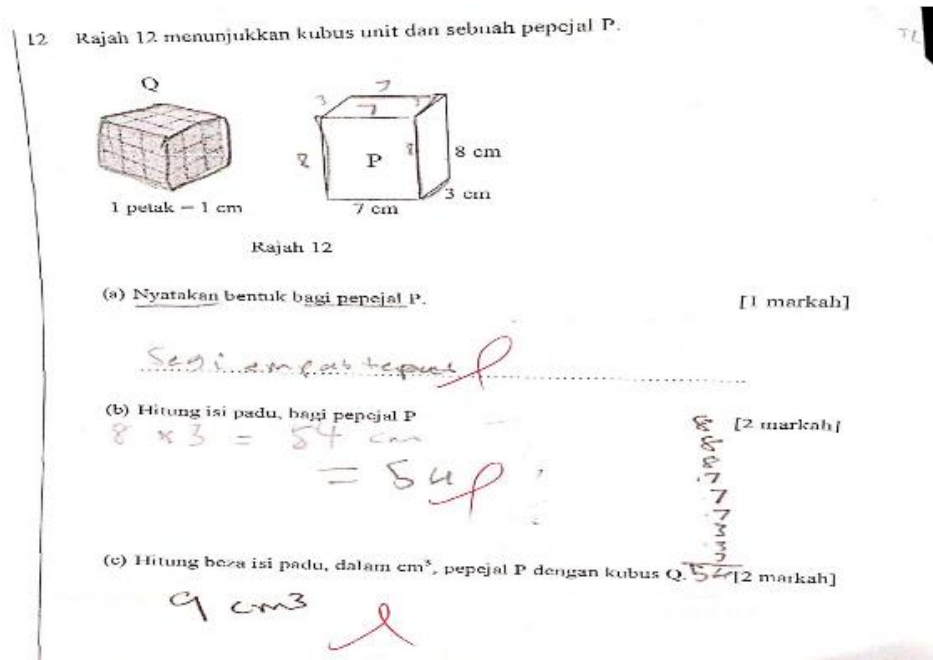 12 Rajah 12 menunjukkan kubus unit dan sebuah pepejal P.
Q
7
3 7 3
8 P 8 8 cm
3 cm
1 petak = 1 cm 7 cm
Rajah 12
(a) Nyatakan bentuk bagi pepejal P. [1 markah]
Segi empat tepat
(b) Hitung isi padu, bagi pepejal P [2 markah]
8 × 3 = 54 cm
= 54
8
8
8
7
7
7
3
3
3
54
(c) Hitung beza isi padu, dalam cm³, pepejal P dengan kubus Q. [2 markah]
9 cm³